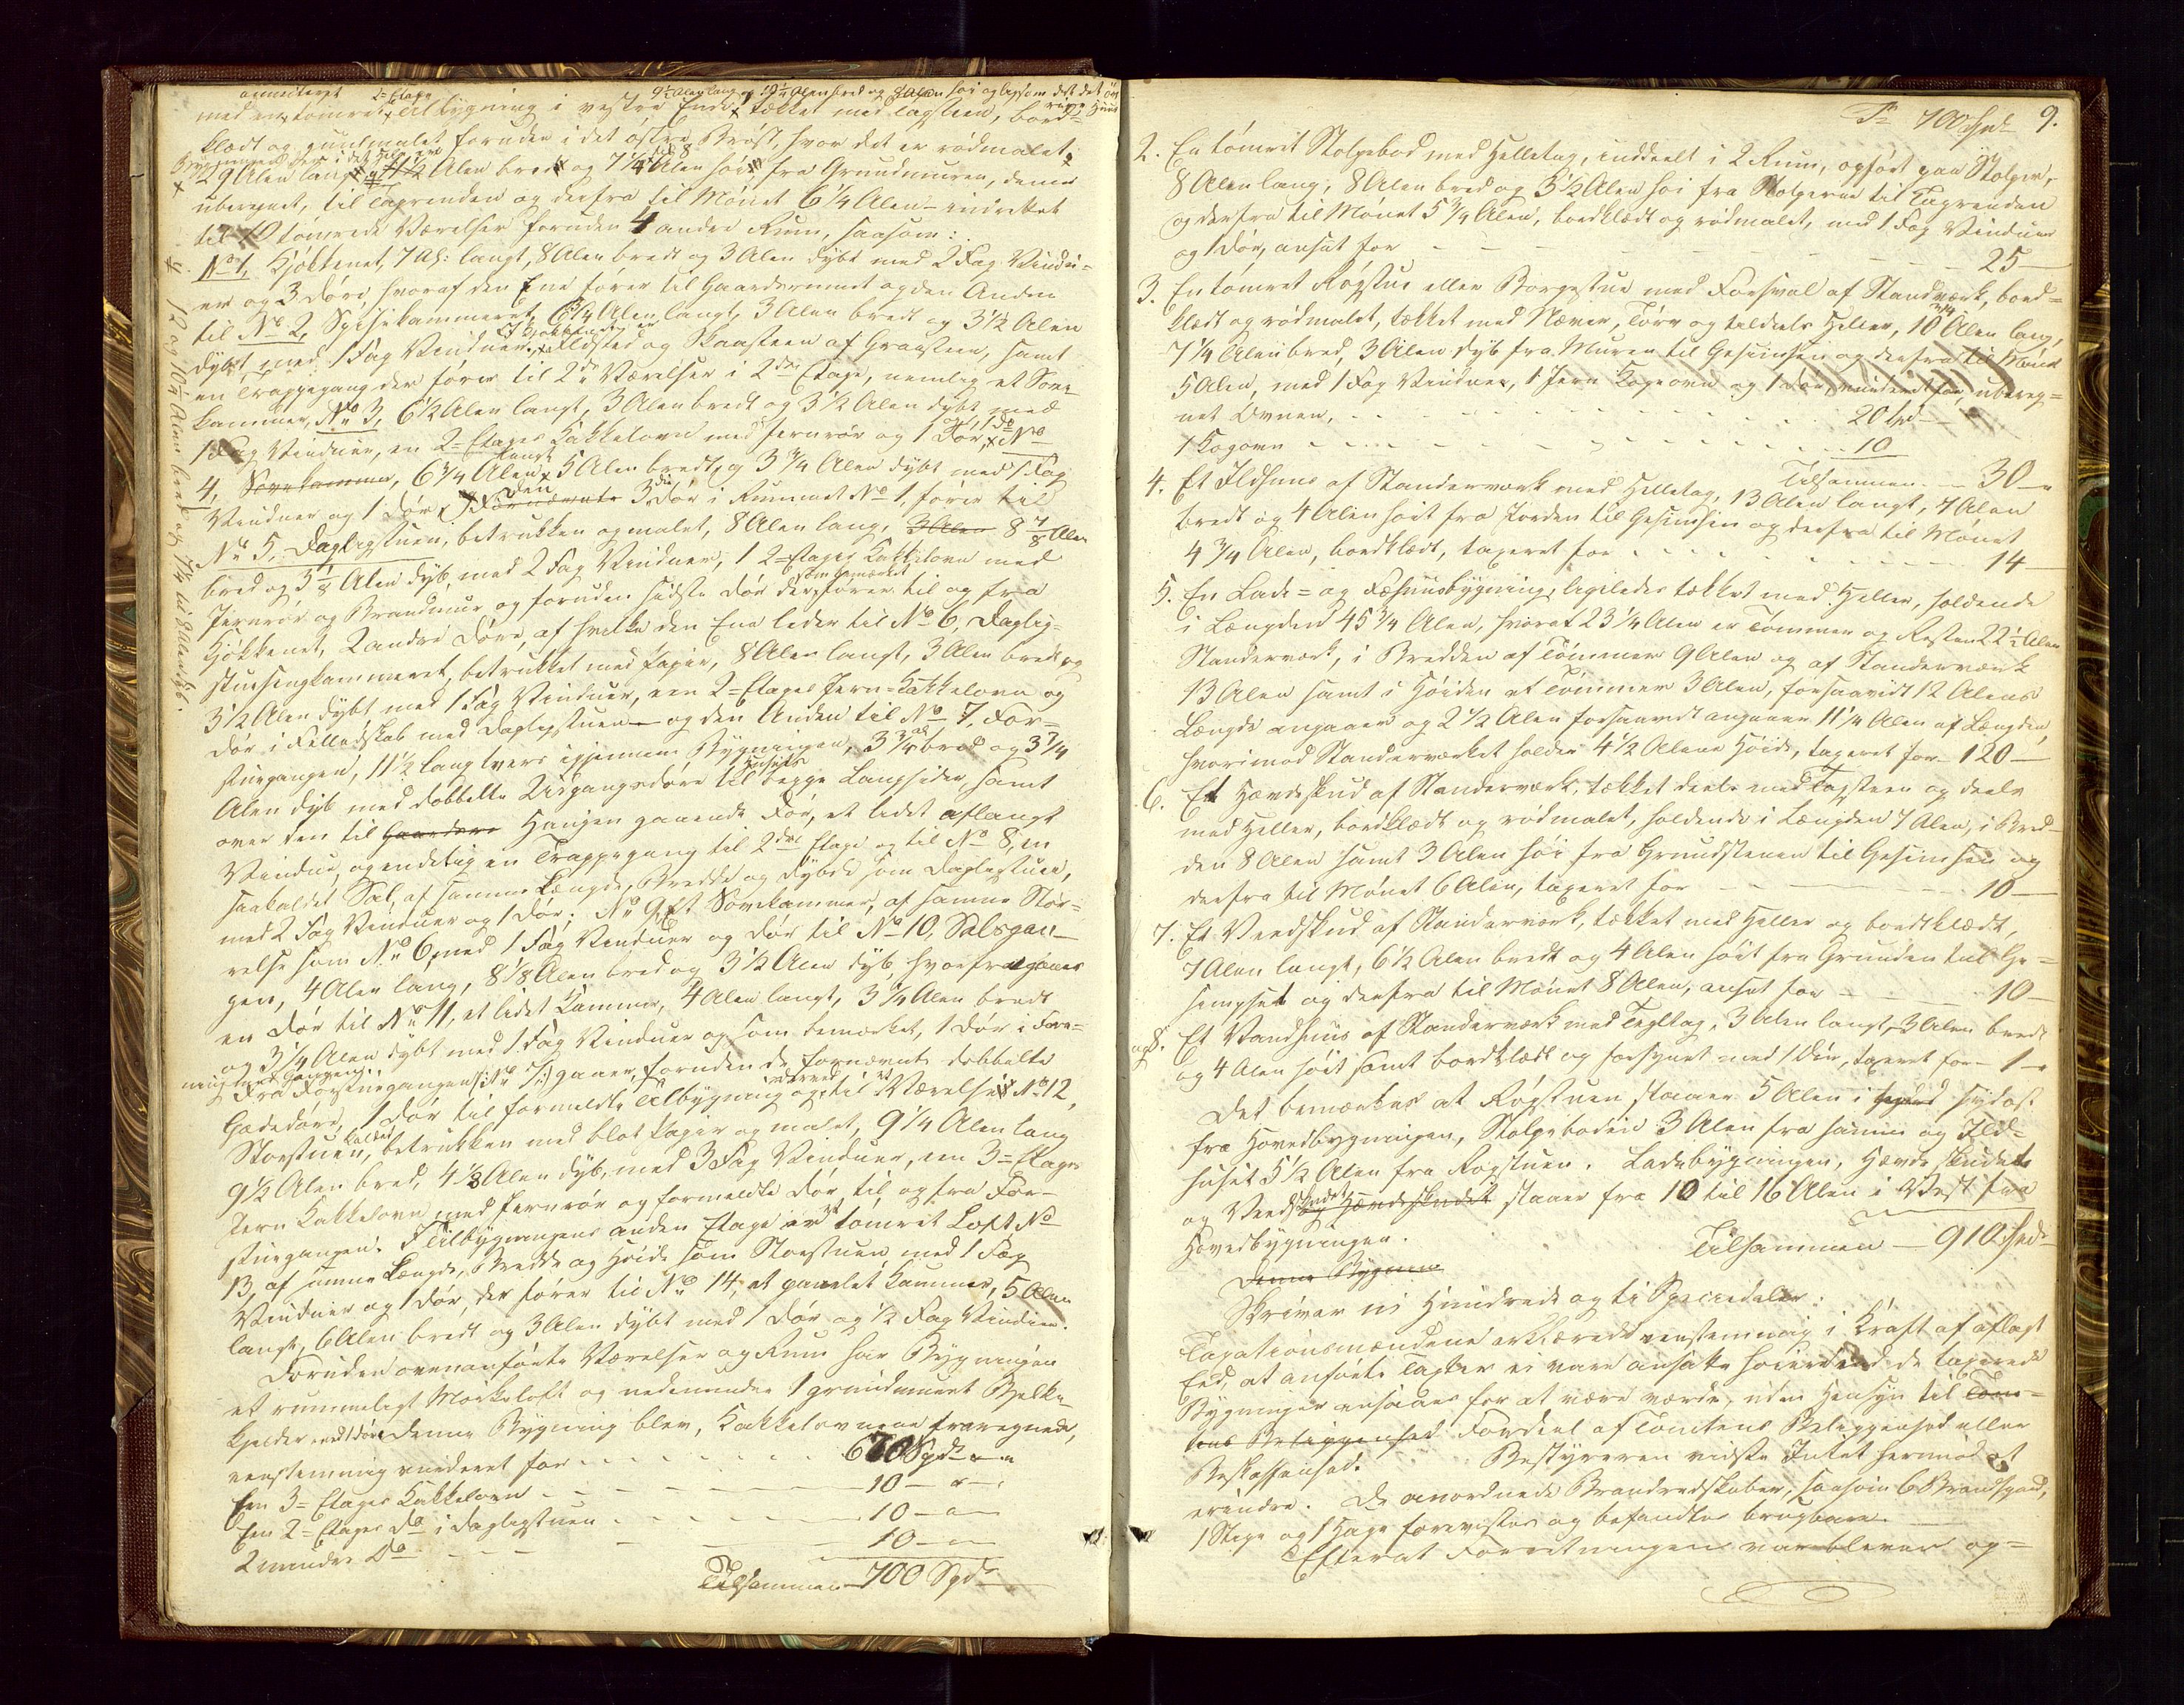 anmeldevist 2= Etage 9 1/2 Alen lang og 10 1/4 Alen bred og 8 Alen høi og ligesom det det øv
med en tømret Tilbygning i vestre Ende, tækket med Tagsteen, bord= rige Huus
klædt og guulmalet foruden i det østre Brøst, hvor det er rødmalet.
Bygningen er i det Hele
29 Alen lang, 11 1/2 Alen bred og 7 1/4 Alen høi, fra Grundmuren, denne
uberegnet, til Tagrenden og derfra til Mønet 6 1/4 Alen - indrettet
til 10 tømrede Værelser foruden 4 andre Rum, saasom:
No 1, Kjøkkenet, 7 Al: langt, 8 Alen bredt og 3 Alen dybt med 2 Fag Vindu=
er og 3 Døre, hvoraf den Ene fører til Gaardsrummet og den Anden
til No 2, Spisekammeret, 6 3/4 Alen langt, 3 Alen bredt og 3 1/2 Alen
dybt, med 1 Fag Vinduer. I Kjøkkenet er Ildsted og Skorsteen af Graasteen, samt
en Trappegang der fører til 2de Værelser i 2den Etage, nemlig et Sove
kammer, No 3, 6 1/2 Alen langt, 3 Alen bredt og 3 1/2 Alen dybt med
1 Fag Vinduer, en 2= Etages Kakkelovn med Jernrør og 1 Dør, og 1 do No
4, Sovekammer, 6 3/4 Alen langt, 5 Alen bredt og 3 3/4 Alen dybt med 1 Fag
Vinduer og 1 Dør. Den Fornævnte 3die Dør i Rummet No 1. fører til
No 5, Dagligstuen, betrukken og malet, 8 Alen lang, 3 Alen 8 7/8 Alen
bred og 3 1/8 Alen dyb, med 2 Fag Vinduer, 1 2= Etages Kakkelovn med
Jernrør og Brandmur og foruden sidste Dør der, som bemærket fører til og fra
Kjøkkenet, 2 andre Døre, af hvilke den Ene leder til No 6, Daglig-
stuesengkammeret, betrukket med Papir, 8 Alen langt, 3 Alen bredt og
3 1/2 Alen dybt med 1 Fag Vinduer, een 2= Etages Jern=Kakkelovn og
Dør i Fælledskab med Dagligstuen - og den Anden til No 7. For=
stuegangen, 11 1/2 lang tvers igjennem Bygningen, 3 3/4 al bred og 3 3/4
Alen dyb med dobbelte Udgangsdøre til Husets begge Langsider, samt
over den til Gaardens Haugen gaaende Dør, et lidet aflangt
Vindue, og endelig en Trappegang til 2den Etage og til No 8, en
saakaldet Sal, af samme Længde, Bredde og Dybde som Dagligstuen,
med 2 Fag Vinduer og 1 Dør; No 9, Et Sovekammer, af samme Stør=
relse som No 6, med 1 Fag Vinduer og Dør til No 10. Salsgan-
gen, 4 Alen lang, 8 1/8 Alen bred og 3 1/2 Alen dyb, hvorfra gaaer
en Dør til No 11, et lidet Kammer, 4 Alen langt, 3 1/4 Alen bredt
og 3 1/4 Alen dybt med 1 Fag Vinduer og som bemærket, 1 Dør i Fore=
ning med Gangen.
Fra Forstuegangen /: No 7 :/ gaaer, foruden de fornævnte dobbelte
Gadedøre, 1 Dør til formeldte Tilbygning og til Værelset No 12,
Storstuen, kaldet, betrukken med blot Papir og malet, 9 1/4 Alen lang
9 1/2 Alen bred, 4 1/8 Alen dyb, med 3 Fag Vinduer, een 3= Etages
Jern Kakkelovn med Jernrør og formeldte Dør til og fra For-
stuegangen. I Tilbygningens anden Etage er et tømret Loft No
13, af samme Længde, Bredde og Høide som Storstuen, med 1 Fag
Vinduer og 1 Dør, der fører til No 14, et panelet Kammer, 5 Alen
langt, 6 Alen bredt og 3 Alen dybt med 1 Dør og 1/2 Fag Vindue.
Foruden ovenanførte Værelser og Rum har Bygningen
et rummeligt Mørkeloft og nedenunder 1 grundmuret Bjelke
kjelder med 1 Dør. Denne Bygning blev, Kakkelovnene fraregnede,
eenstemmig vurderet for - - - - 670 Spd
Een 3= Etages Kakkelovn - - - - 10 -
Een 2= Etages do i Dagligstuen - - - 10 -
2 mindre do - - - - 10 -
Tilsammen 700 Spd
12 og 10 1/2 Alen bred og 7 1/4 til 8 Alen dyb.
9.
Tr 700 Spd
2. En tømret Stolpebod med Helletag, inddeelt i 2 Rum, opført paa Stolper,
8 Alen lang, 8 Alen bred og 3 1/2 Alen høi fra Stolperne til Tagrenden
og derfra til Mønet 5 3/4 Alen, bordklædt og rødmalet, med 1 Fag Vinduer
og 1 Dør, ansat for - - - 25 -
3. En tømret Røgstue eller Borgestue med Forsval af Standværk, bord=
klædt og rødmalet, tækket med Næver, Tørv og tildeels Heller, 10 3/4 Alen lang,
7 1/4 Alen bred, 3 Alen dyb fra Muren til Gesimsen og derfra til Mønet
5 Alen, med 1 Fag Vinduer, 1 Jern Kogeovn og 1 Dør, vurderet for, ubereg=
net Ovnen, - - - 20 Spd
1 Kogovn - - - 10
Tilsammen - 30 -
4. Et Ildhuus af Standerværk med Helletag, 13 Alen langt, 7 Alen
bredt og 4 Alen høit fra Jorden til Gesimsen og derfra til Mønet
4 3/4 Alen, bordklædt, taxeret for - - - 14 -
5. En Lade= og Fæhuusbygning, ligeledes tækket med Heller, holdende
i Længden 45 3/4 Alen, hvoraf 23 1/4 Alen er Tømmer og Resten 22 1/2 Alen
Standerværk, i Bredden af Tømmer 9 Alen og af Standerværk
13 Alen samt i Høiden af Tømmer 3 Alen, forsaavidt 12 Alens
Længde angaaer og 2 1/2 Alen forsaavidt angaaer 11 1/4 Alen af Længden,
hvorimod Standerværket holder 4 1/2 Alens Høide, taxeret for 120 -
6. Et Hævdeskud af Standerværk, tækket deels med Tagsteen og deels
med Heller, bordklædt og rødmalet, holdende i Længden 7 Alen, i Bred-
den 8 Alen samt 3 Alen høi fra Grundstenen til Gesimsen og
derfra til Mønet 6 Alen, taxeret for - - - 10 -
7. Et Veedskud af Standerværk, tækket med Heller og bordklædt,
7 Alen langt, 6 1/2 Alen bredt og 4 Alen høit fra Grunden til Ge=
sempset og derfra til Mønet 8 Alen, ansat for - - - 10 -
og 8. Et Vandhuus af Standerværk med Tegltag, 3 Alen langt, 3 Alen bredt
og 4 Alen høit samt bordklædt og forsynet med 1 Dør, taxeret for - 1 -
Det bemærkes at Røgstuen staaer 5 Alen i sydost
fra Hovedbygningen, Stolpeboden 3 Alen fra samme og Ild-
huset 5 1/2 Alen fra Røgstuen. Ladebygningen, Hævdeskudet
og Veedskudet og Hævdeskudet staaer fra 10 til 16 Alen i Vest fra
Hovedbygningen.
Tilsammen - 910 Spd
Denne Bygning
Skriver ni Hundrede og ti Speciedaler.
Taxationsmændene erklærede eenstemmig i Kraft af aflagt
Eed, at anførte Taxter ei vare ansatte høiere end de taxerede
Bygninger ansaaes for at være værde, uden Hensyn til Tom=
tens Beliggenhed Fordeel af Tomtens Beliggenhed eller
Beskaffenhed. Bestyreren vidste Intet hermod at
erindre. De anordnede Brandredskaber, saasom 6 Brandspand,
1 Stige og 1 Hage forevistes og befandtes brugbare.
Efterat Forretningen var bleven op=